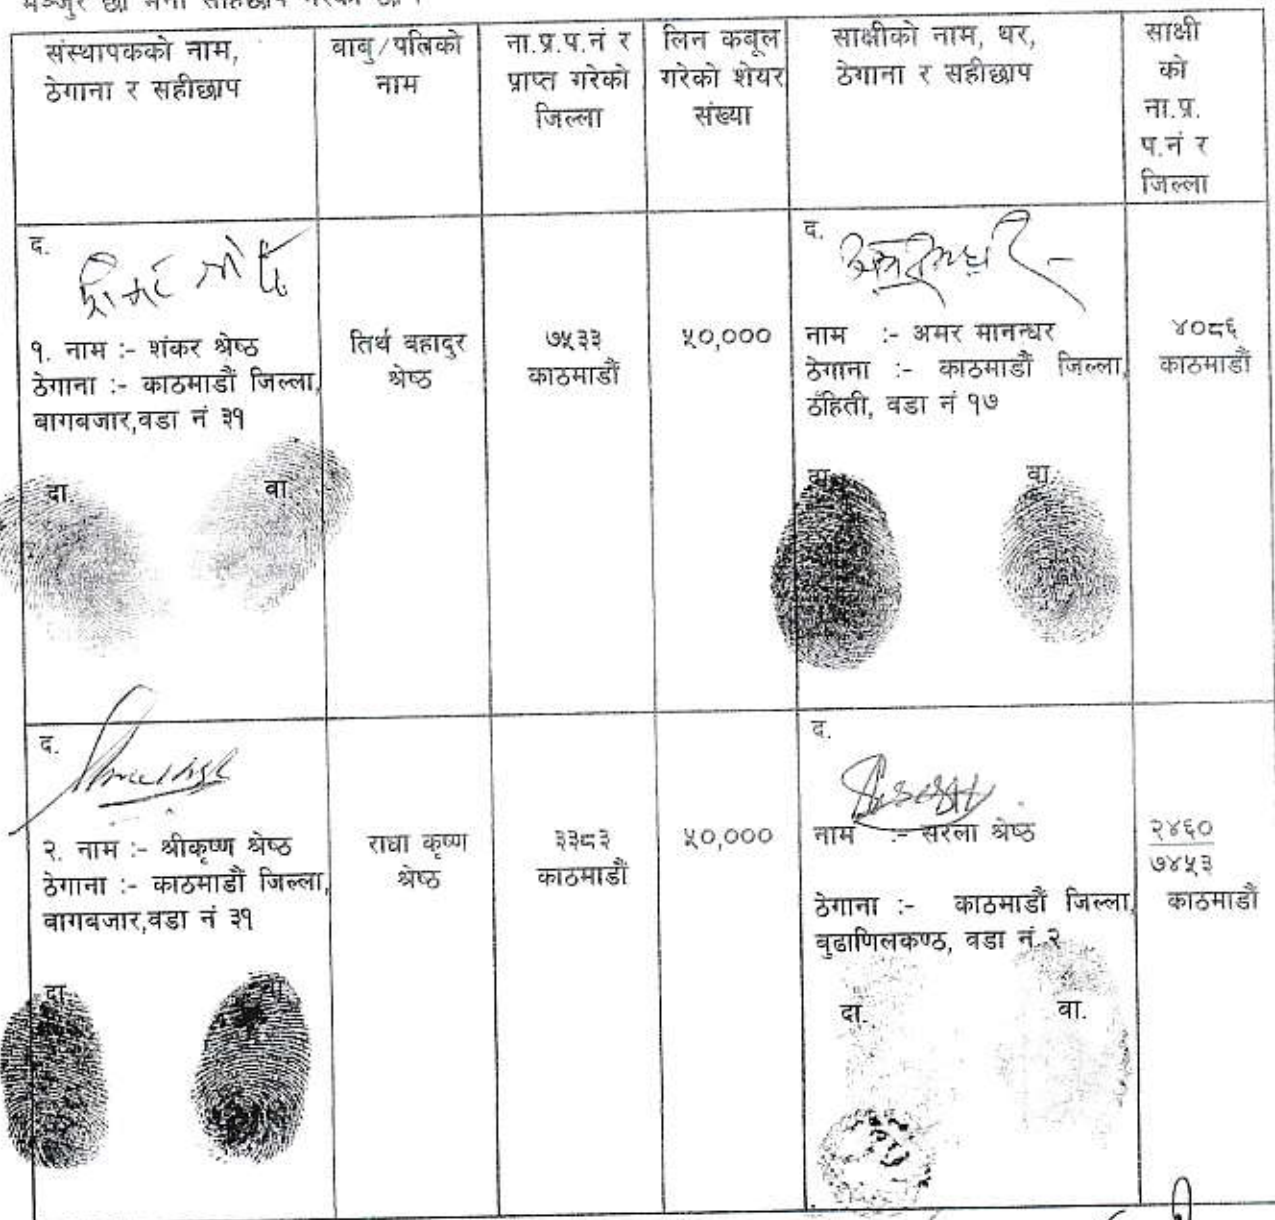 मञ्जुर छौं भनी सहिछाप गरेका छौं ।
संस्थापकको नाम,
ठेगाना र सहीछाप
बाबु/पतिको
नाम
ना.प्र.प.नं र
प्राप्त गरेको
जिल्ला
लिन कबूल
गरेको शेयर
संख्या
साक्षीको नाम, थर,
ठेगाना र सहीछाप
साक्षी
को
ना.प्र.
प.नं र
जिल्ला
द.
१. नाम :- शंकर श्रेष्ठ
ठेगाना :- काठमाडौं जिल्ला,
बागबजार,वडा नं ३१
दा.
बा.
तिर्थ बहादुर
श्रेष्ठ
७५३३
काठमाडौं
५०,०००
द.
नाम :- अमर मानन्धर
ठेगाना :- काठमाडौं जिल्ला,
ठँहिती, वडा नं १७
दा.
बा.
४०८६
काठमाडौं
द.
२. नाम :- श्रीकृष्ण श्रेष्ठ
ठेगाना :- काठमाडौं जिल्ला,
बागबजार,वडा नं ३१
दा.
बा.
राधा कृष्ण
श्रेष्ठ
३३८३
काठमाडौं
५०,०००
द.
नाम :- सरला श्रेष्ठ
ठेगाना :- काठमाडौं जिल्ला,
बुढाणिलकण्ठ, वडा नं २
दा.
बा.
२४६०
७४५३
काठमाडौं